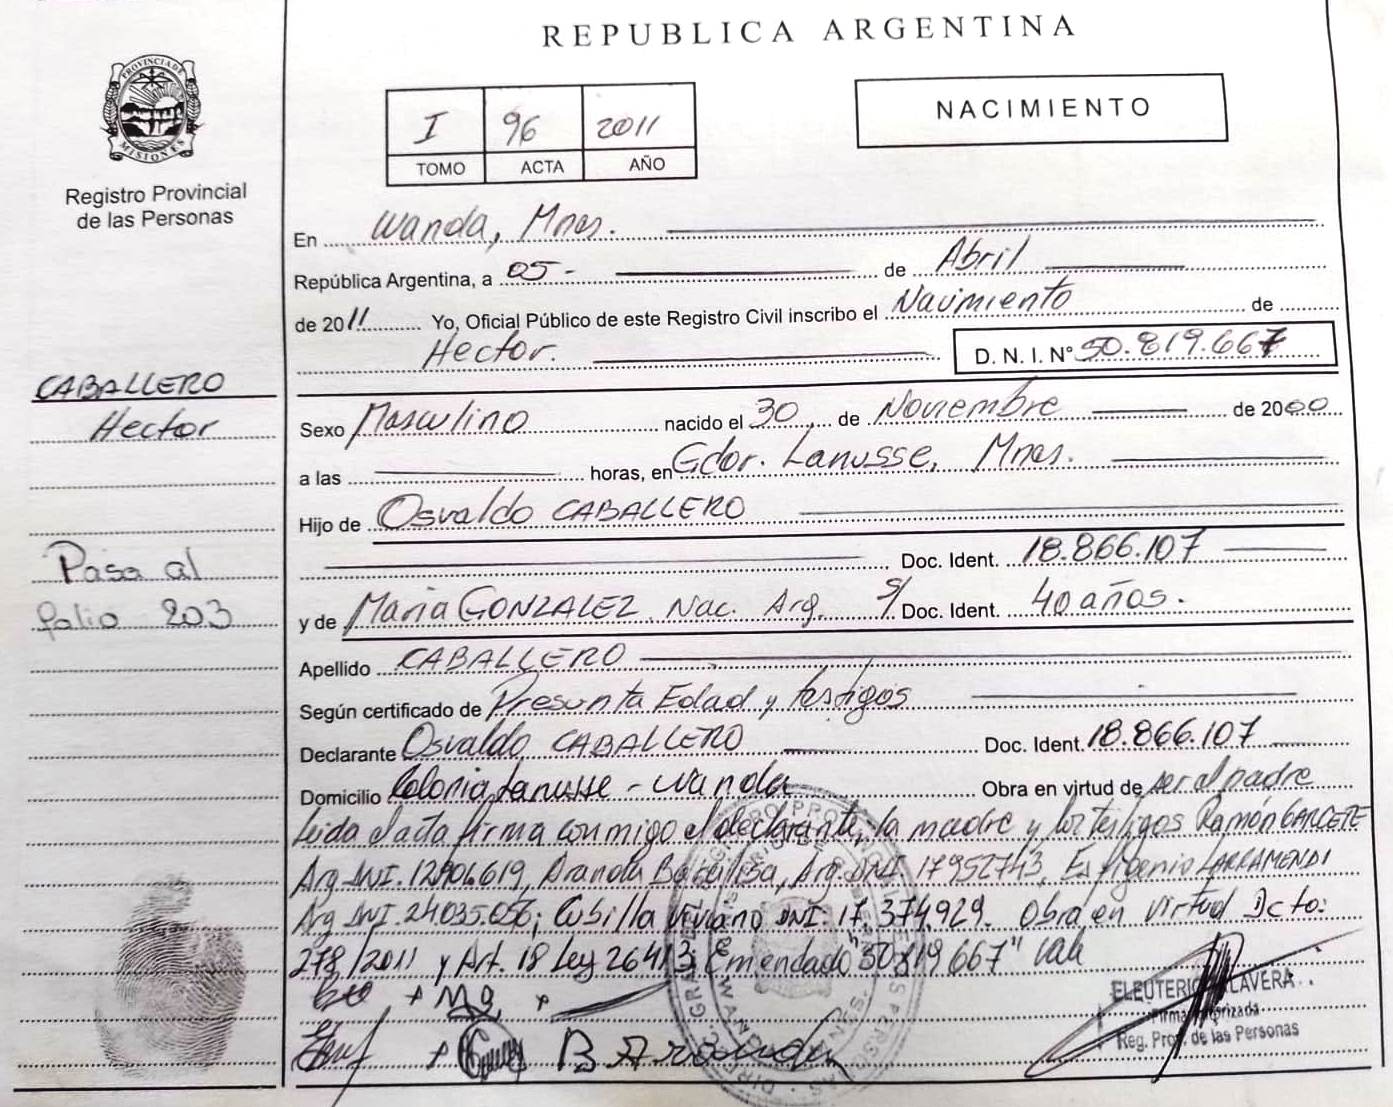 REPUBLICA ARGENTINA
PROVINCIA DE
MISIONES
Registro Provincial
de las Personas
I 96 2011
TOMO ACTA AÑO
NACIMIENTO
En Wanda, Mnes.
República Argentina, a 05 - de Abril
de 2011 Yo, Oficial Público de este Registro Civil inscribo el Nacimiento de
Hector. D. N. I. Nº 50.819.667
CABALLERO
Hector
Sexo Masculino nacido el 30 de Noviembre de 2000
a las horas, en Gdor. Lanusse, Mnes.
Hijo de Osvaldo CABALLERO
Doc. Ident. 18.866.107
Pasa al
folio 203
y de Maria GONZALEZ, Nac. Arg. S/ Doc. Ident. 40 años.
Apellido CABALLERO
Según certificado de Presunta Edad y testigos
Declarante Osvaldo CABALLERO Doc. Ident. 18.866.107
Domicilio Colonia Lanusse - Wanda Obra en virtud de ser el padre
Leida el acta firma conmigo el declarante, la madre y los testigos Ramón GARCETE
Arg DNI. 12904619, Aranda Basilisa, Arg. DNI 17952743, Esfigenio LARRAMENDI
Arg DNI 24035.056; Cubilla Viviano DNI: 17.374.929. Obra en virtud Dcto:
278/2011 y Art. 18 Ley 26413; Emendado "50819667" vale
B. Aranda
ELEUTERIO LAVERA
Firma Autorizada
Reg. Prov. de las Personas